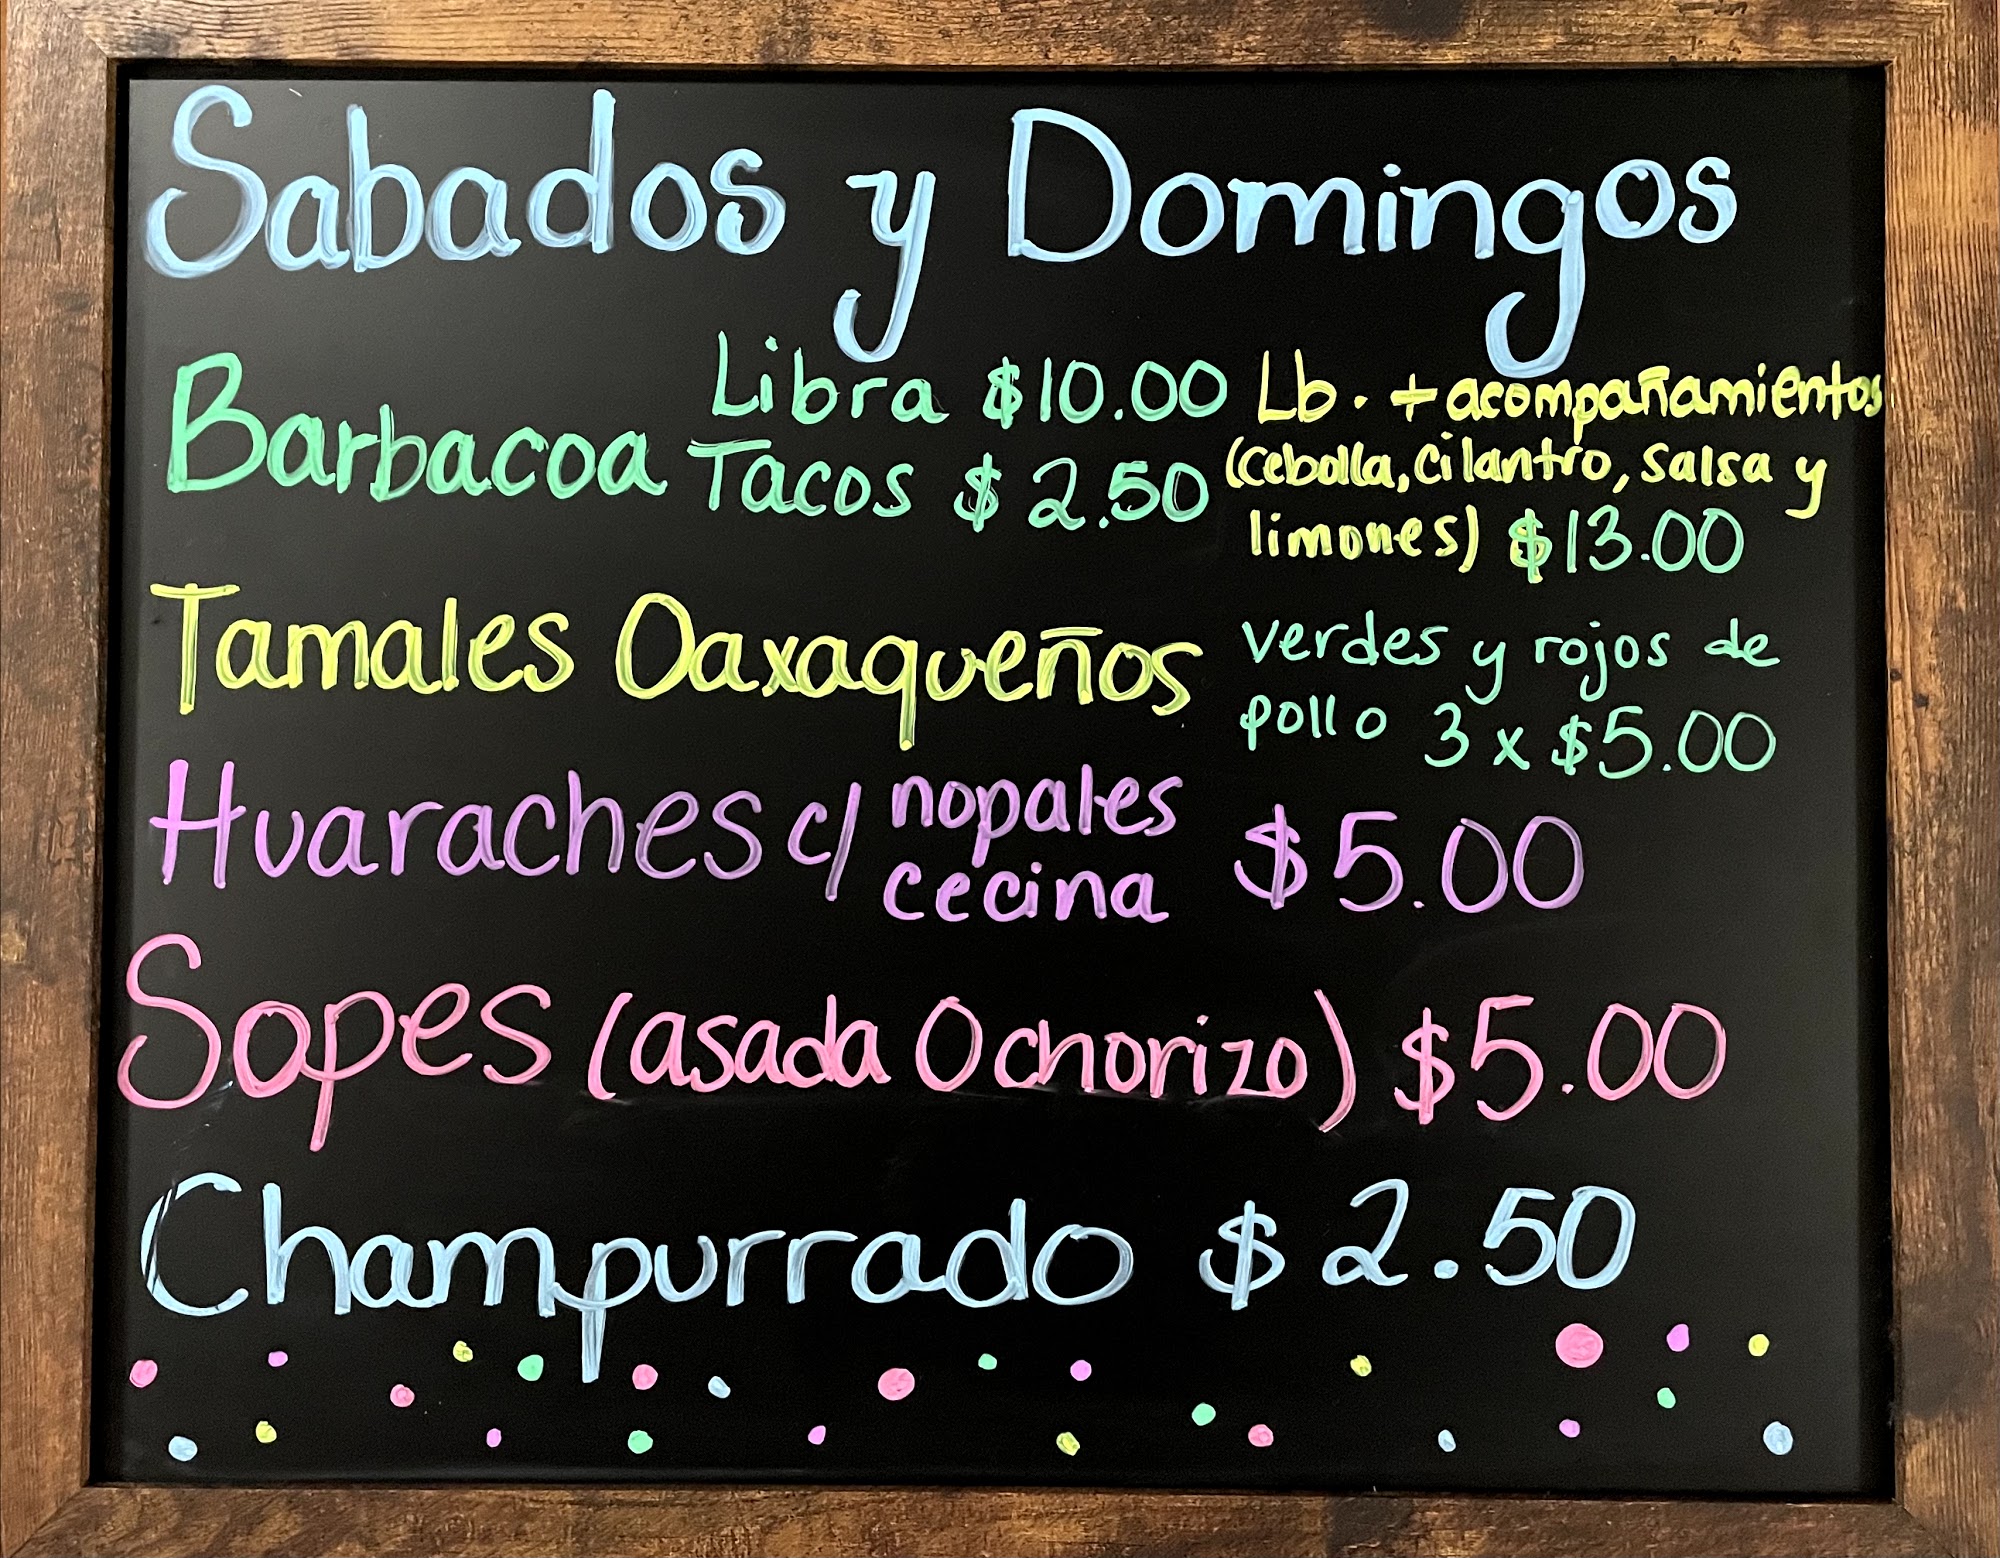 Sabados y Domingos
Barbacoa Libra $10.00
Tacos $2.50
Lb. + acompañamientos
(cebolla, cilantro, salsa y
limones) $13.00
Tamales Oaxaqueños verdes y rojos de
pollo 3 x $5.00
Huaraches c/ nopales
cecina $5.00
Sopes (asada O chorizo) $5.00
Champurrado $2.50